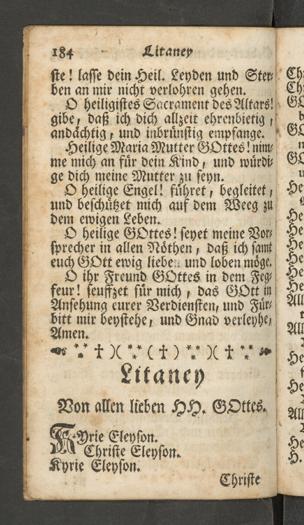 184 Litaney
ste! lasse dein Heil. Leyden und Ster-
ben an mir nicht verlohren gehen.
O heiligstes Sacrament des Altars!
gibe, daß ich dich allzeit ehrenbietig,
andächtig, und inbrünstig empfange.
Heilige Maria Mutter GOttes! nim-
me mich an für dein Kind, und würdi-
ge dich meine Mutter zu seyn.
O heilige Engel! führet, begleitet,
und beschützet mich auf dem Weeg zu
dem ewigen Leben.
O heilige GOttes! seyet meine Vor-
sprecher in allen Nöthen, daß ich samt
euch GOtt ewig lieben und loben möge.
O ihr Freund GOttes in dem Feg-
feur! seuffzet für mich, das GOtt in
Ansehung eurer Verdiensten, und Für-
bitt mir beystehe, und Gnad verleyhe,
Amen.
Litaney
Von allen lieben HH. GOttes.
Kyrie Eleyson.
Christe Eleyson.
Kyrie Eleyson.
Christe